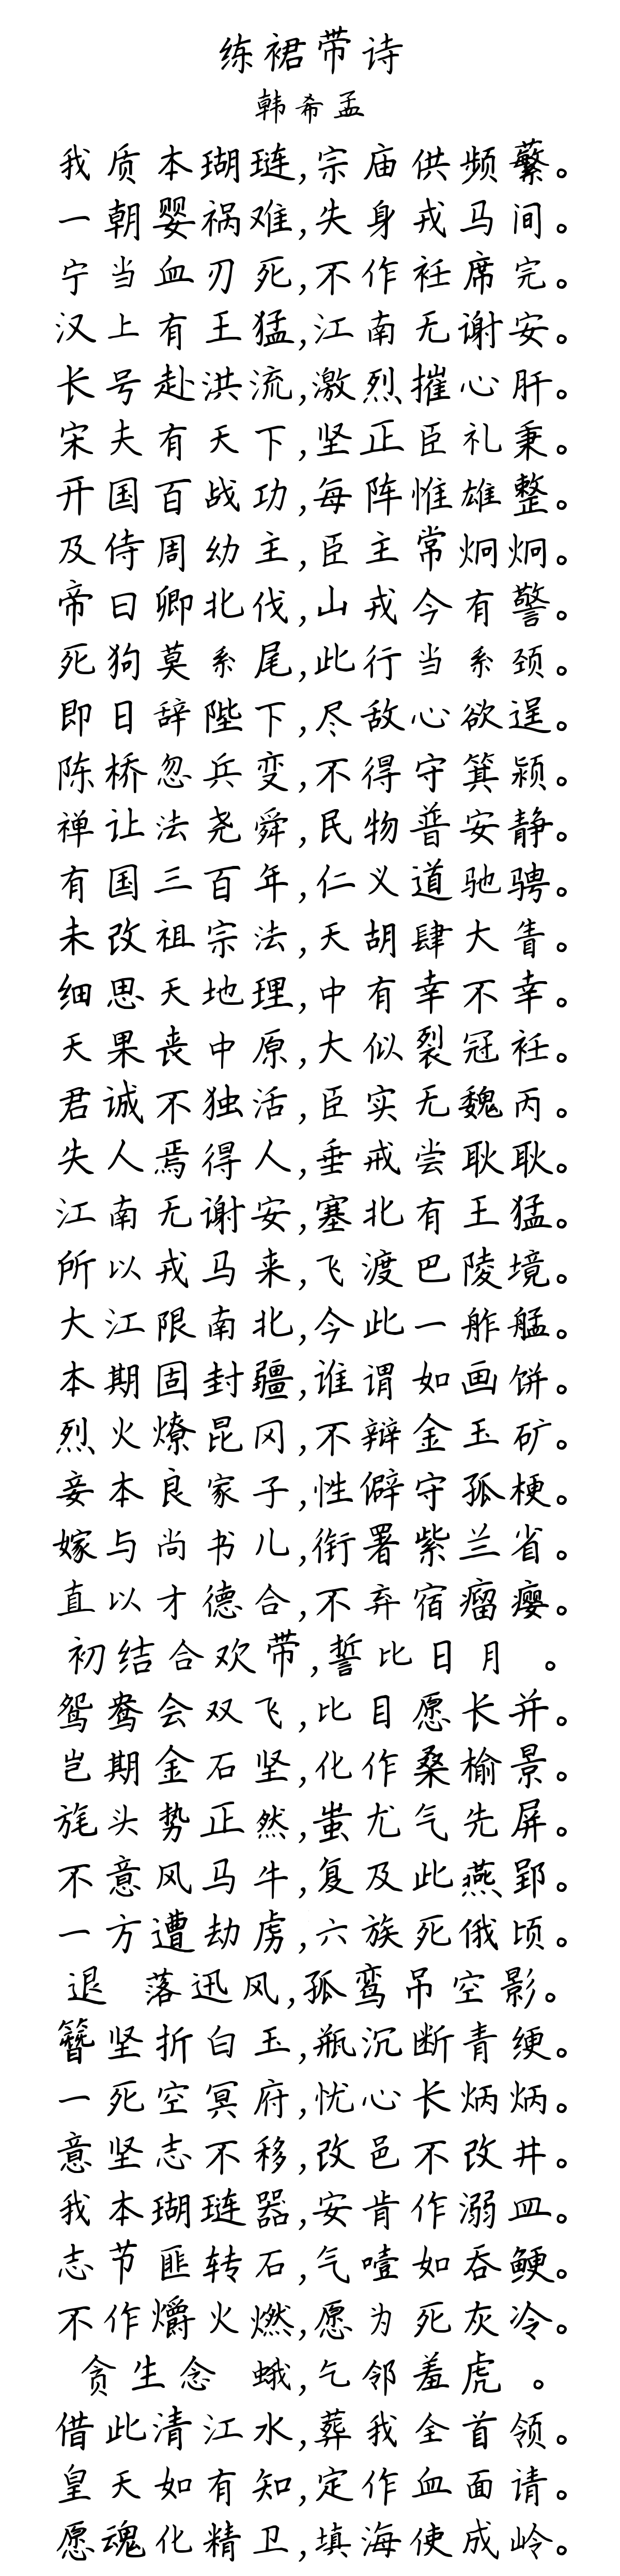 练裙带诗
韩希孟
我质本瑚琏,宗庙供频蘩。
一朝婴祸难,失身戎马间。
宁当血刃死,不作衽席完。
汉上有王猛,江南无谢安。
长号赴洪流,激烈摧心肝。
宋夫有天下,坚正臣礼秉。
开国百战功,每阵惟雄整。
及侍周幼主,臣主常炯炯。
帝曰卿北伐,山戎今有警。
死狗莫系尾,此行当系颈。
即日辞陛下,尽敌心欲逞。
陈桥忽兵变,不得守箕颍。
禅让法尧舜,民物普安静。
有国三百年,仁义道驰骋。
未改祖宗法,天胡肆大眚。
细思天地理,中有幸不幸。
天果丧中原,大似裂冠衽。
君诚不独活,臣实无魏丙。
失人焉得人,垂戒尝耿耿。
江南无谢安,塞北有王猛。
所以戎马来,飞渡巴陵境。
大江限南北,今此一舴艋。
本期固封疆,谁谓如画饼。
烈火燎昆冈,不辩金玉矿。
妾本良家子,性僻守孤梗。
嫁与尚书儿,衔署紫兰省。
直以才德合,不弃宿瘤瘿。
初结合欢带,誓比日月 。
鸳鸯会双飞,比目愿长并。
岂期金石坚,化作桑榆景。
旄头势正然,蚩尤气先屏。
不意风马牛,复及此燕郢。
一方遭劫虏,六族死俄顷。
退 落迅风,孤鸾吊空影。
簪坚折白玉,瓶沉断青绠。
一死空冥府,忧心长炳炳。
意坚志不移,改邑不改井。
我本瑚琏器,安肯作溺皿。
志节匪转石,气噎如吞鲠。
不作爝火燃,愿为死灰冷。
贪生念 蛾,乞邻羞虎 。
借此清江水,葬我全首领。
皇天如有知,定作血面请。
愿魂化精卫,填海使成岭。